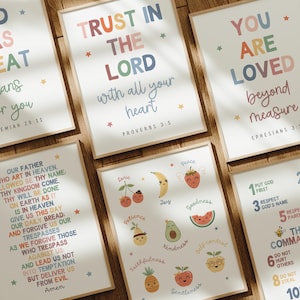 S
EAT
ans
r you
EMIAH 29:11
TRUST IN
THE
LORD
with all your
heart
PROVERBS 3:5
YOU
ARE
LOVED
beyond
measure
EPHESIANS
OUR FATHER
WHO ART IN HEAVEN,
HALLOWED BE THY NAME.
THY KINGDOM COME.
THY WILL BE DONE
ON EARTH AS IT IS
IN HEAVEN
GIVE US THIS DAY
OUR DAILY BREAD,
AND FORGIVE US OUR
TRESPASSES
AS WE FORGIVE THOSE
WHO TRESPASS
AGAINST US
AND LEAD US NOT
INTO TEMPTATION,
BUT DELIVER US
FROM EVIL
Amen
Love
Joy
Peace
Patience
Kindness
Goodness
Faithfulness
Gentleness
Self-control
1 PUT GOD FIRST
3 RESPECT GOD'S NAME
THE
COMMA
6 DO NOT HURT OTHERS
8 DO NOT STEAL
10